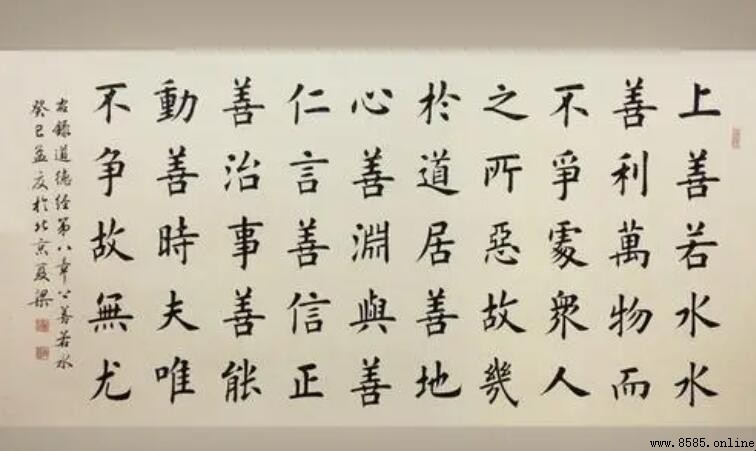 上善若水水
善利萬物而
不爭處衆人
之所惡故幾
於道居善地
心善淵與善
仁言善信正
善治事善能
動善時夫唯
不争故無尤
右錄道德经第八章上善若水
癸巳孟夏於北京夏梁
www.8585.online